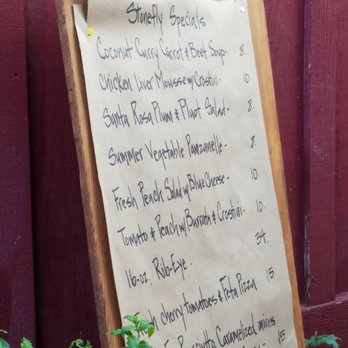 Stonefly Specials
Coconut Curry Carrot & Beet Soup - 8.
Chicken Liver Mousse w/ Crostini - 10.
Santa Rosa Plum & Pluot Salad - 8
Summer Vegetable Panzanelle - 8.
Fresh Peach Salad w/ Blue Cheese - 10.
Tomato & Peach w/ Burrata & Crostini - 10.
16-oz. Rib-Eye - 34.
Cherry Tomatoes & Feta Pizza 15.
Prosciutto Caramelized onions 15.